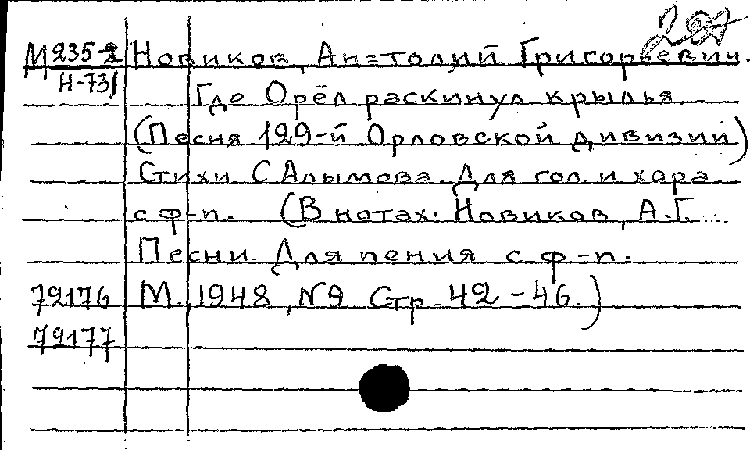 М235-2 Новиков, Анатолий Григорьевич.
Н-731
Где Орёл раскинул крылья
(Песня 129-й Орловской дивизии)
Стихи С Алымова. Для гол. и хора
с ф-п. (В нотах: Новиков, А.Г.
Песни. Для пения с ф-п.
72176 М., 1948, № 9. Стр. 42-46.)
72177